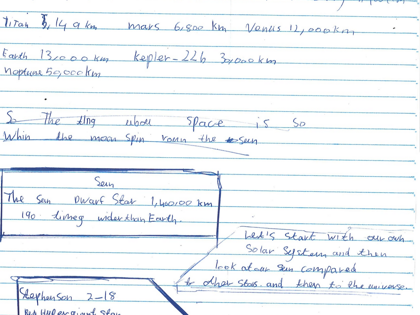 Titan 5,149 km mars 6,800 km Venus 12,000km
Earth 13,000 km kepler-22b 3,000km
neptune 50,000km
So The ting about space is so
Whin the moon spin roun the sun
Sun
The sun Dwarf Star 1,400,00 km
190 timeg wider than Earth.
Let's start with our own
Solar System and then
look at our sun compared
to other stars. and then to the universe.
Stephenson 2-18